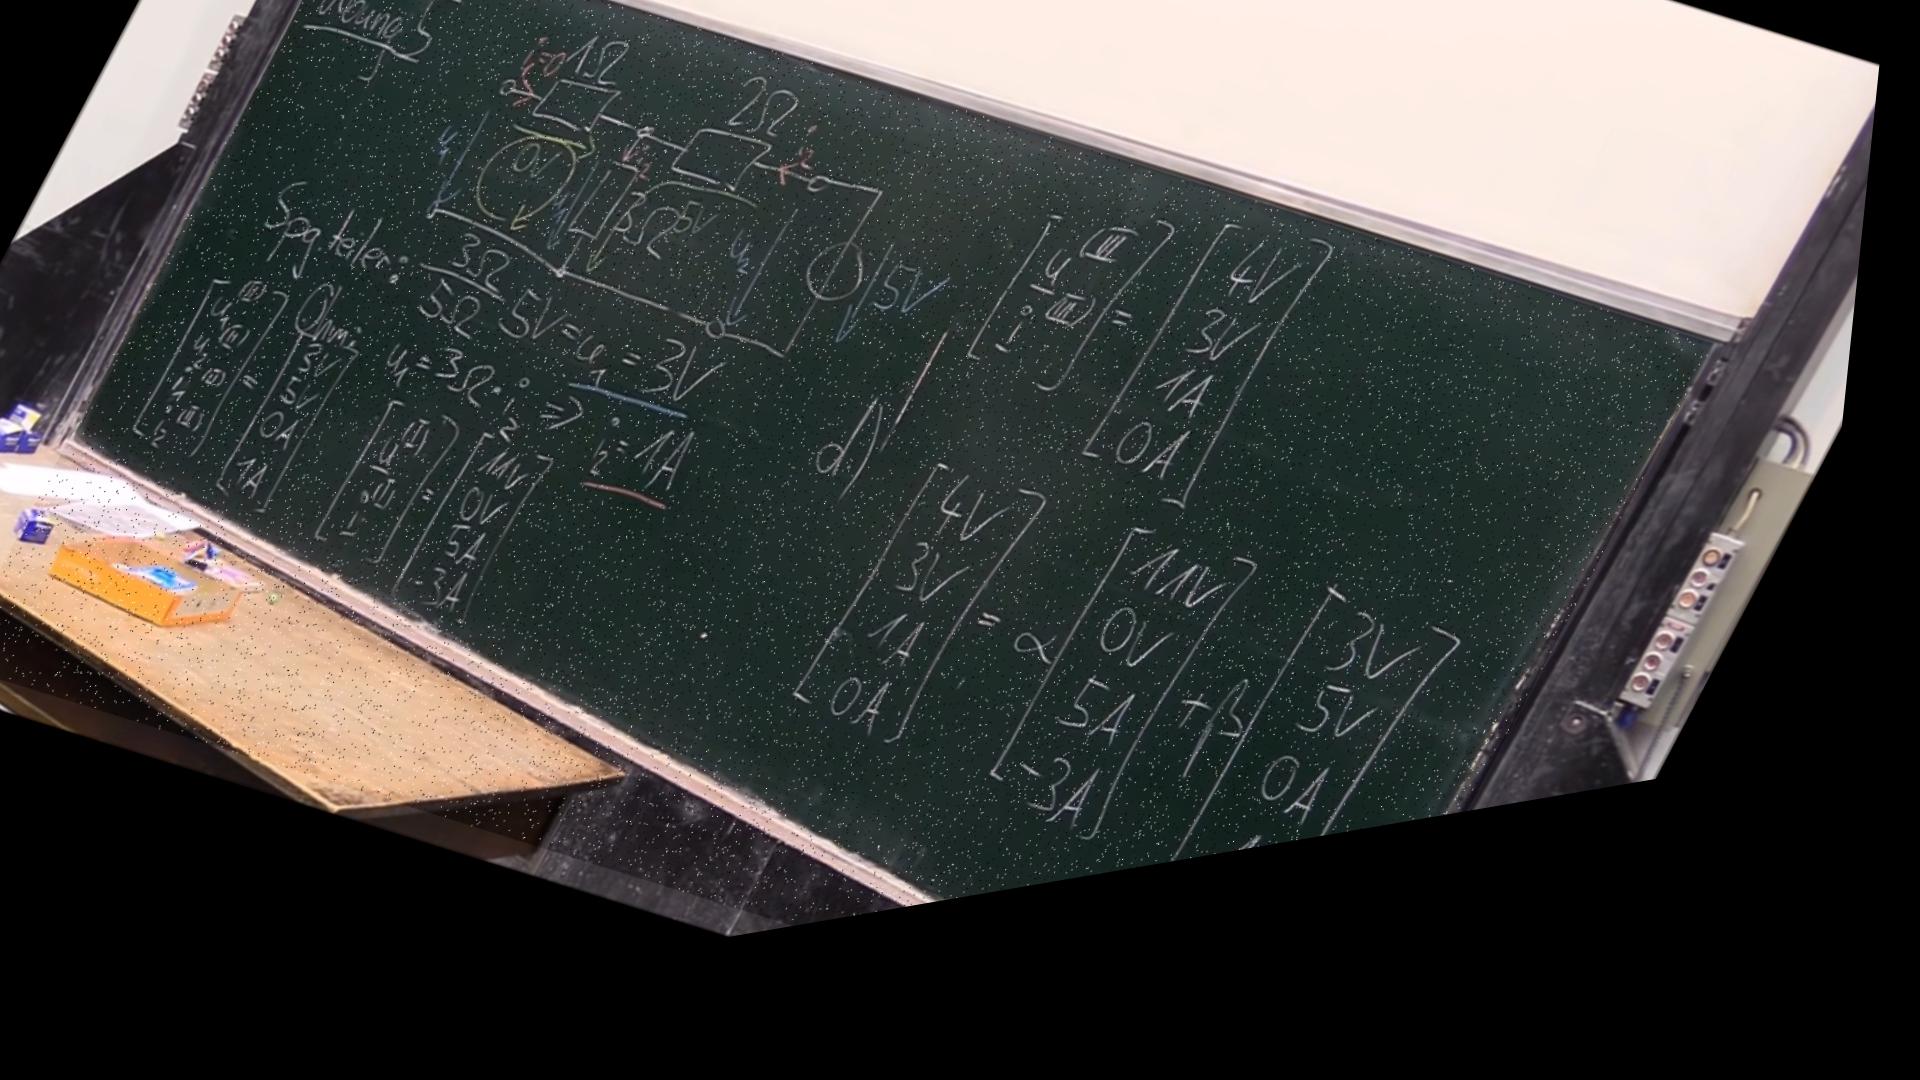 i=0 1Ω
2Ω
u₁ 0V i₂ i₂
u₁ 3Ω 5V u₂ 5V
Spgteiler: 3Ω/5Ω 5V = u₁ = 3V
Ohm: u₁ = 3Ω · i₂ ⇒ i₂ = 1A
[u₁^(II) u₂^(II) i₁^(II) i₂^(II)] = [3V 5V 0A 1A]
[u^(I) i^(I)] = [11V 0V 5A -3A]
[u^(III) i^(III)] = [4V 3V 1A 0A]
d)
[4V 3V 1A 0A] = α [11V 0V 5A -3A] + β [3V 5V 0A